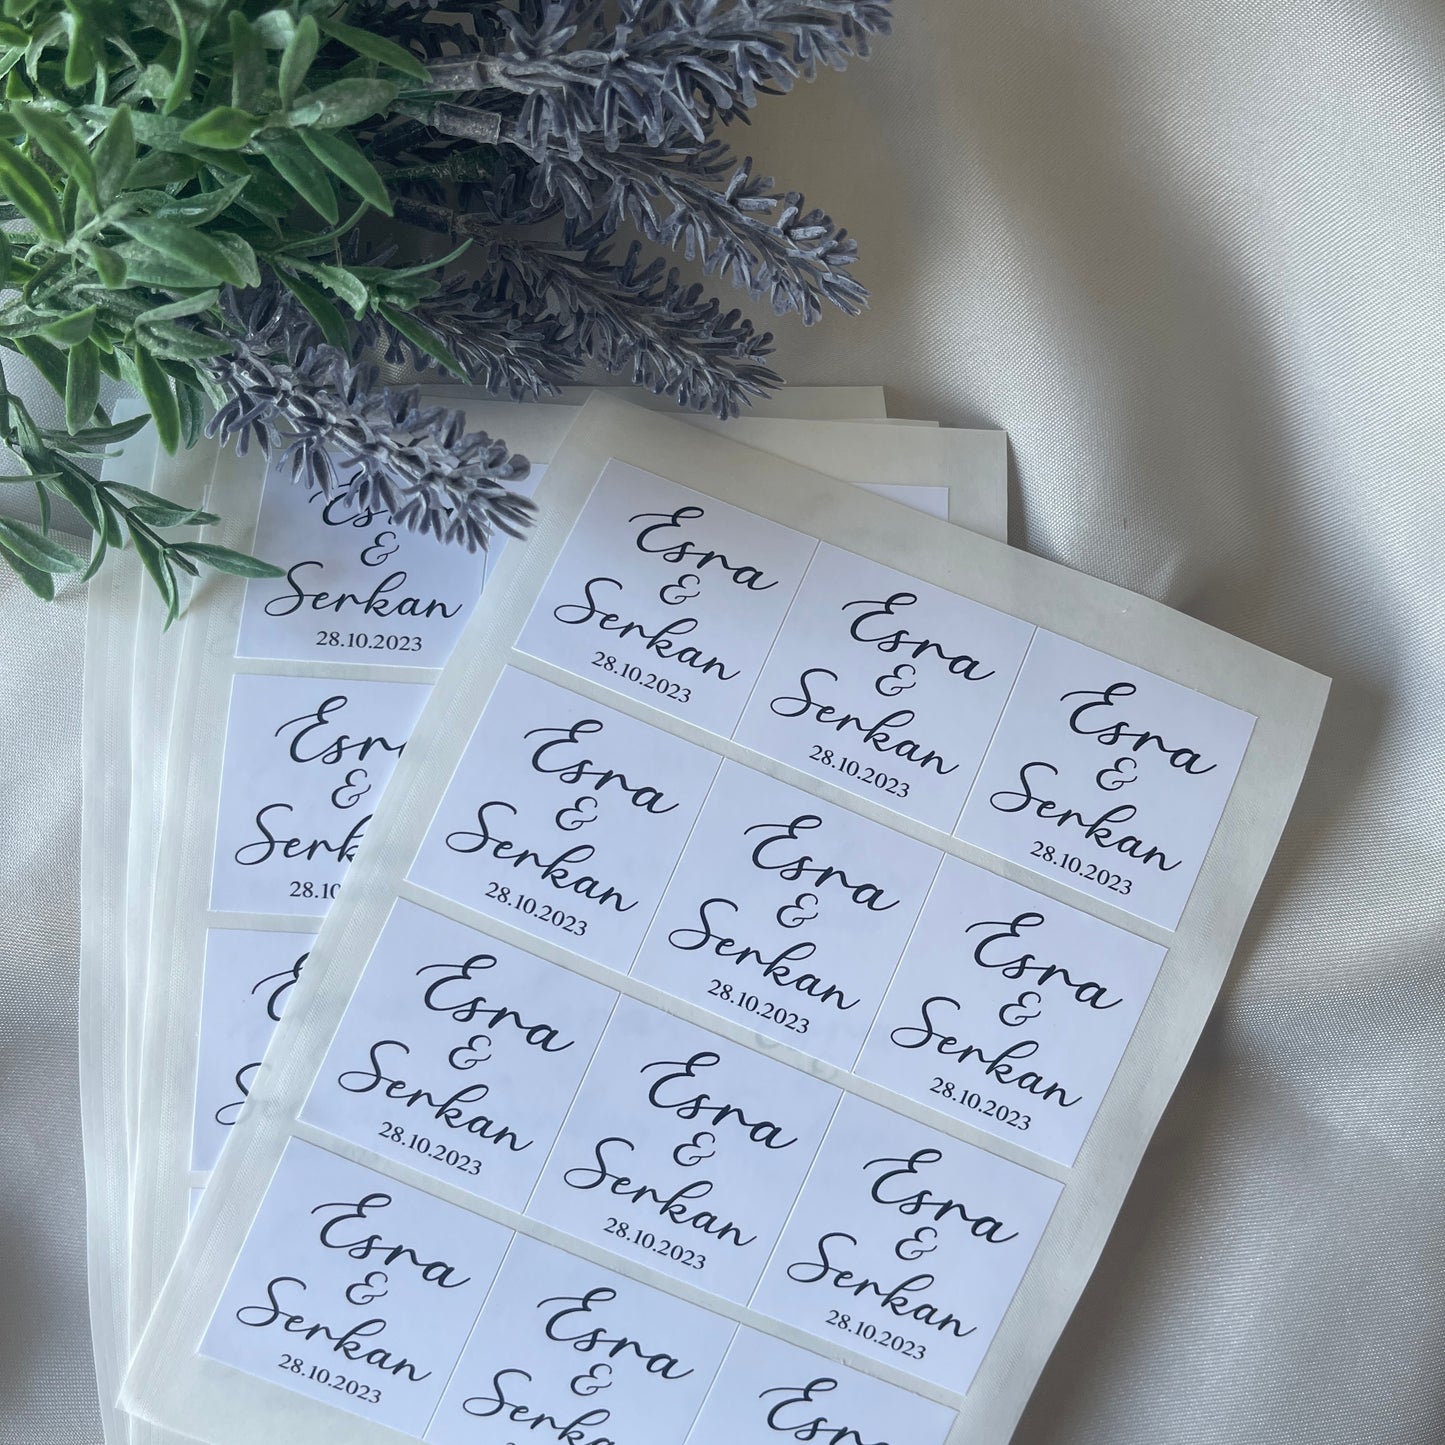 Esra
&
Serkan
28.10.2023
Esra
&
Serkan
28.10.2023
Esra
&
Serkan
28.10.2023
Esra
&
Serkan
28.10.2023
Esra
&
Serkan
28.10.2023
Esra
&
Serkan
28.10.2023
Esra
&
Serkan
28.10.2023
Esra
&
Serkan
28.10.2023
Esra
&
Serkan
28.10.2023
Esra
&
Serkan
28.10.2023
Esra
&
Serkan
&
Serkan
28.10.2023
&